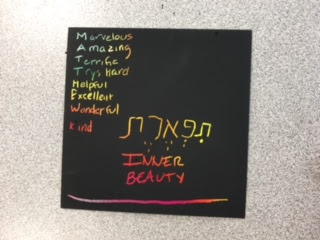 Marvelous
Amazing
Terrific
Trys Hard
Helpful
Excellent
Wonderful
Kind
תִפְאֶרֶת
INNER
BEAUTY